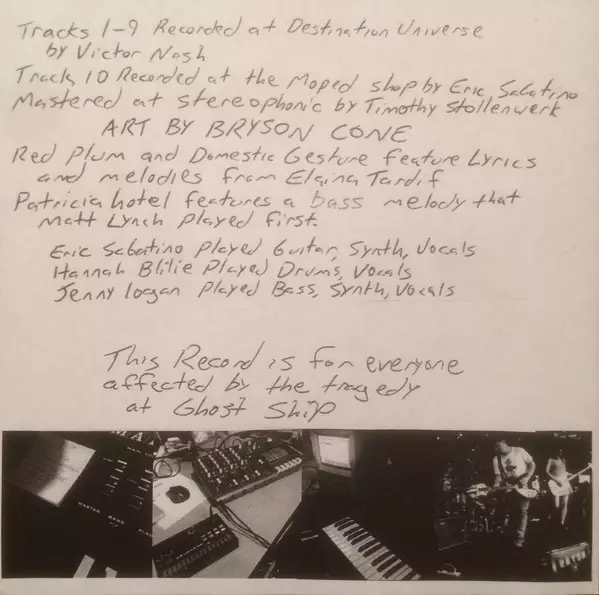 Tracks 1-9 Recorded at Destination Universe
by Victor Nash
Track 10 Recorded at the Moped shop by Eric Sabatino
Mastered at Stereophonic by Timothy Stollenwerk
ART BY BRYSON CONE
Red Plum and Domestic Gesture feature Lyrics
and melodies from Elaina Tardif
Patricia hotel features a bass melody that
Matt Lynch played first.
Eric Sabatino Played Guitar, Synth, Vocals
Hannah Blilie Played Drums, Vocals
Jenny logan Played Bass, Synth, Vocals
This Record is for everyone
affected by the tragedy
at Ghost Ship